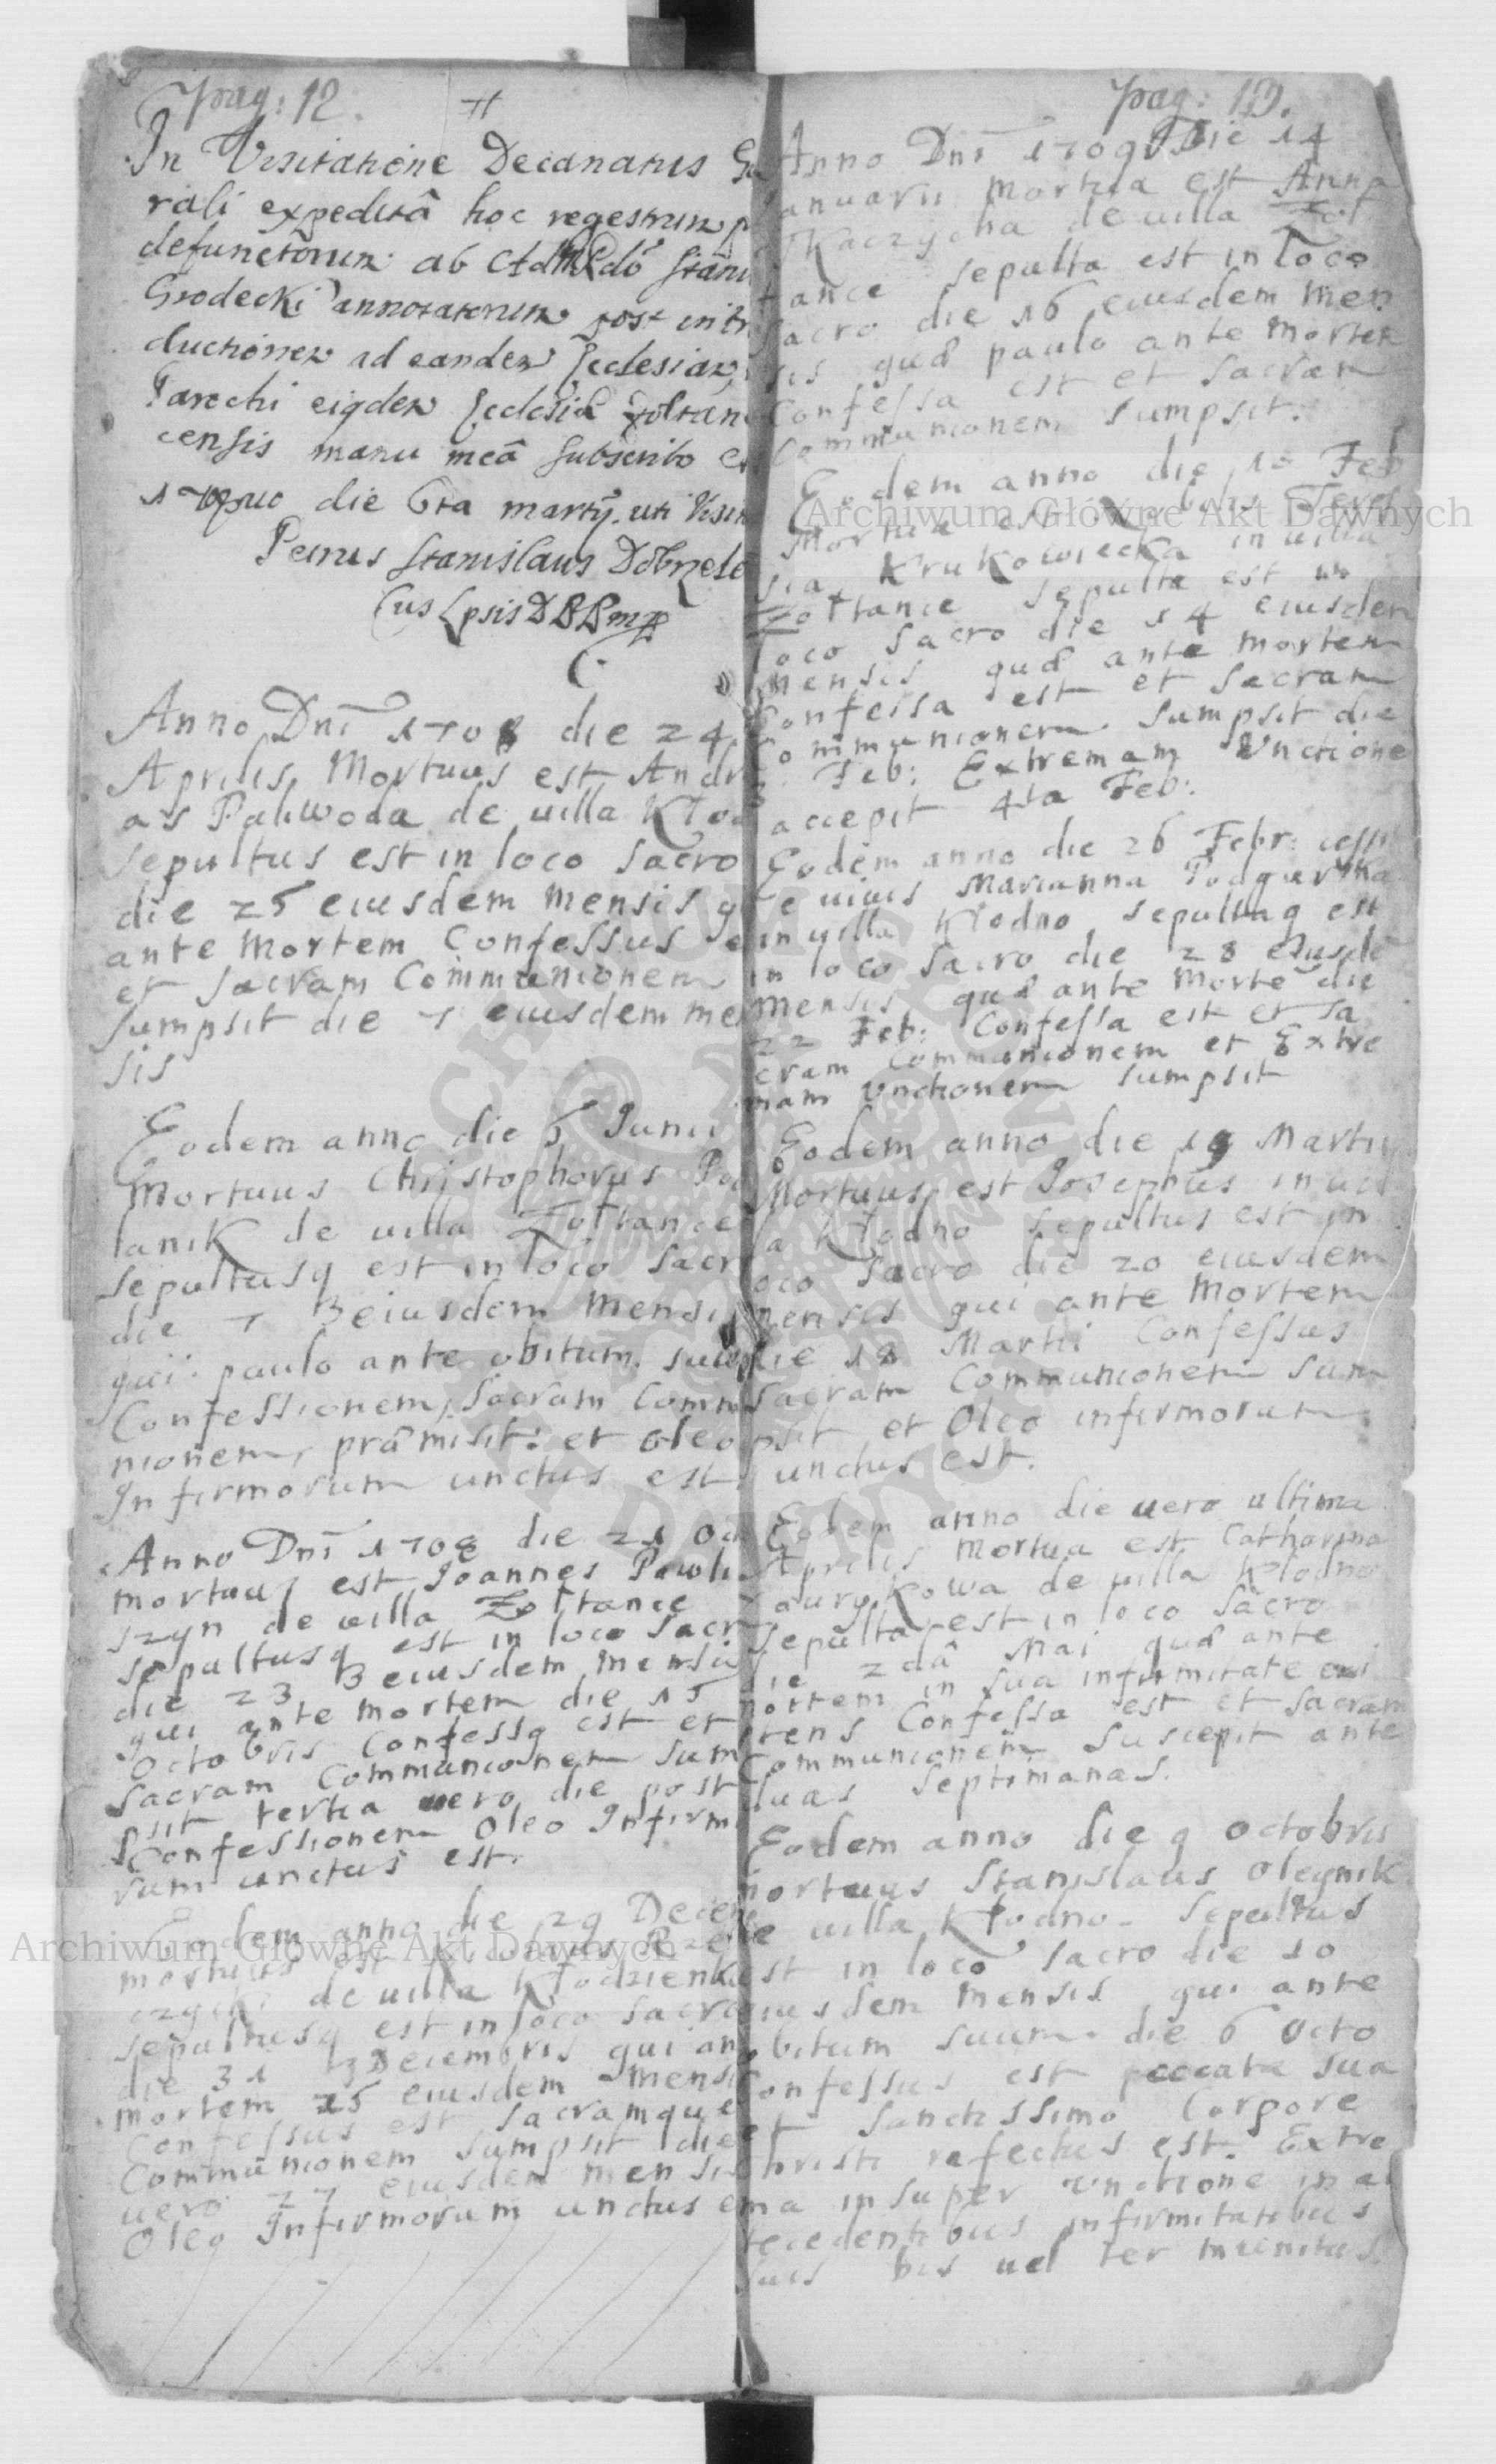 pag: 12.
In Visitatione Decanatus Ge
rali expeditâ hoc regestrum
defunctorum ab
Grodecki annotatorum post intr
ductionem ad eandem Ecclesiam
Parochi eiqdem Ecclesiæ Zoltan
censis manu meâ subscribo
die 6ta martij. uti Visit
Petrus Stanislaus
Anno Dni 1708 die 24
Aprilis Mortuus est Andr
as Paliwoda de uilla Kłod
sepultus est in loco sacro
die 25 eiusdem mensis q
ante mortem Confessus e
et sacram Communionem
sumpsit die 7 eiusdem me
sis
Eodem anno die 6 Junii
Mortuus Christophorus Pod
lanik de uilla Zołtance
sepultusq est in loco sacr
die 7 eiusdem Mensis
qui paulo ante obitum suum
Confessionem, sacram Comm
nionem, præmisit: et oleo
Infirmorum unctus est
Anno Dni 1708 die 21 Oct
mortuus est Joannes Pawli
szyn de uilla Zołtance
sepultusq est in loco sacr
die 23 eiusdem mensis
qui ante mortem die 15
Octobris Confessq est et
sacram Communionem sum
psit tertia uero die post
Confessionem Oleo Infirm
rum unctus est.
Eodem anno die 29 Decem
mortuus est
czycki de uilla Kłodzienk
sepultusq est in loco sacro
die 31 Decembris qui an
mortem 25 eiusdem mensi
Confessus est sacramque
Communionem sumpsit die
uero 27 eiusdem mensis
Oleo Infirmorum unctus e
pag: 13.
Anno Dni 1709 Die 14
anuarii mortua est Anna
Kaczycha de uilla Zoł
tance sepulta est in loco
sacro die 16 eiusdem men
sis quæ paulo ante mortem
Confessa est et sacram
Communionem sumpsit.
Eodem anno die 10 Feb
Mortua est Nobilis Teres
sia Krukowiecka in uilla
Zołtance sepulta est in
loco sacro die 14 eiusdem
mensis quæ ante mortem
Confessa est et sacram
Communionem sumpsit die
Feb: Extremam Unctione
accepit 4ta Feb:
Eodem anno die 26 Febr: cessit
e uiuis Marianna Podgurska
in uilla Kłodno sepultaq est
in loco sacro die 28 eiusdē
mensis quæ ante mortē die
22 Feb: Confessa est et sa
cram Communionem et Extre
mam Unctionem sumpsit
Eodem anno die 19 Martii
Mortuus est Josephus in uil
la Kłodno sepultus est in
loco sacro die 20 eiusdem
mensis qui ante mortem
die 18 Martii Confessus
sacram Communionem sum
psit et Oleo infirmorum
unctus est.
Eodem anno die uero ultima
Aprilis mortua est Catharina
aurykowa de uilla Kłodno
sepulta est in loco sacro
die 2dâ Mai quæ ante
mortem in sua infirmitate
Confessa est et sacram
Communionem suscepit ante
duas septimanas.
Eodem anno die 9 octobris
mortuus Stanislaus Oleynik
de uilla Kłodno sepultus
est in loco sacro die 10
eiusdem mensis qui ante
obitum suum die 6 Octo
Confessus est peccata sua
et sanctissimo Corpore
Christi refectus est. Extre
ma insuper Unctione in an
tecedentibus infirmitatibus
suis bis uel ter munitus.
Archiwum Główne Akt Dawnych
Archiwum Główne Akt Dawnych